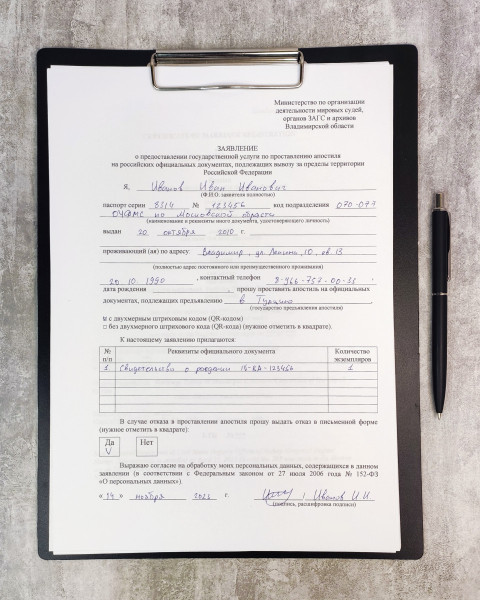 Министерство по организации
деятельности мировых судей,
органов ЗАГС и архивов
Владимирской области
ЗАЯВЛЕНИЕ
о предоставлении государственной услуги по проставлению апостиля
на российских официальных документах, подлежащих вывозу за пределы территории
Российской Федерации
Я, Иванов Иван Иванович
(Ф.И.О. заявителя полностью)
паспорт серии 8514 № 123456 код подразделения 070-077
ОУФМС по Московской
(наименование и реквизиты иного документа, удостоверяющего личность)
выдан 20 октября 2010 г.
проживающий (ая) по адресу: Владимир, ул. Ленина, 10, кв. 13
(полностью адрес постоянного или преимущественного проживания)
20.10.1990, контактный телефон 8-966-767-00-33
дата рождения, прошу проставить апостиль на официальных
документах, подлежащих предъявлению в Турцию
(государство предъявления апостиля)
с двухмерным штриховым кодом (QR-кодом)
□ без двухмерного штрихового кода (QR-кода) (нужное отметить в квадрате).
К настоящему заявлению прилагаются:
№ п/п Реквизиты официального документа Количество экземпляров
1. Свидетельство о рождении 1
В случае отказа в проставлении апостиля прошу выдать отказ в письменной форме
(нужное отметить в квадрате):
Да Нет
V
Выражаю согласие на обработку моих персональных данных, содержащихся в данном
заявлении (в соответствии с Федеральным законом от 27 июля 2006 года № 152-ФЗ
«О персональных данных»).
«14» ноября 2022 г. / Иванов И.И.
(подпись, расшифровка подписи)